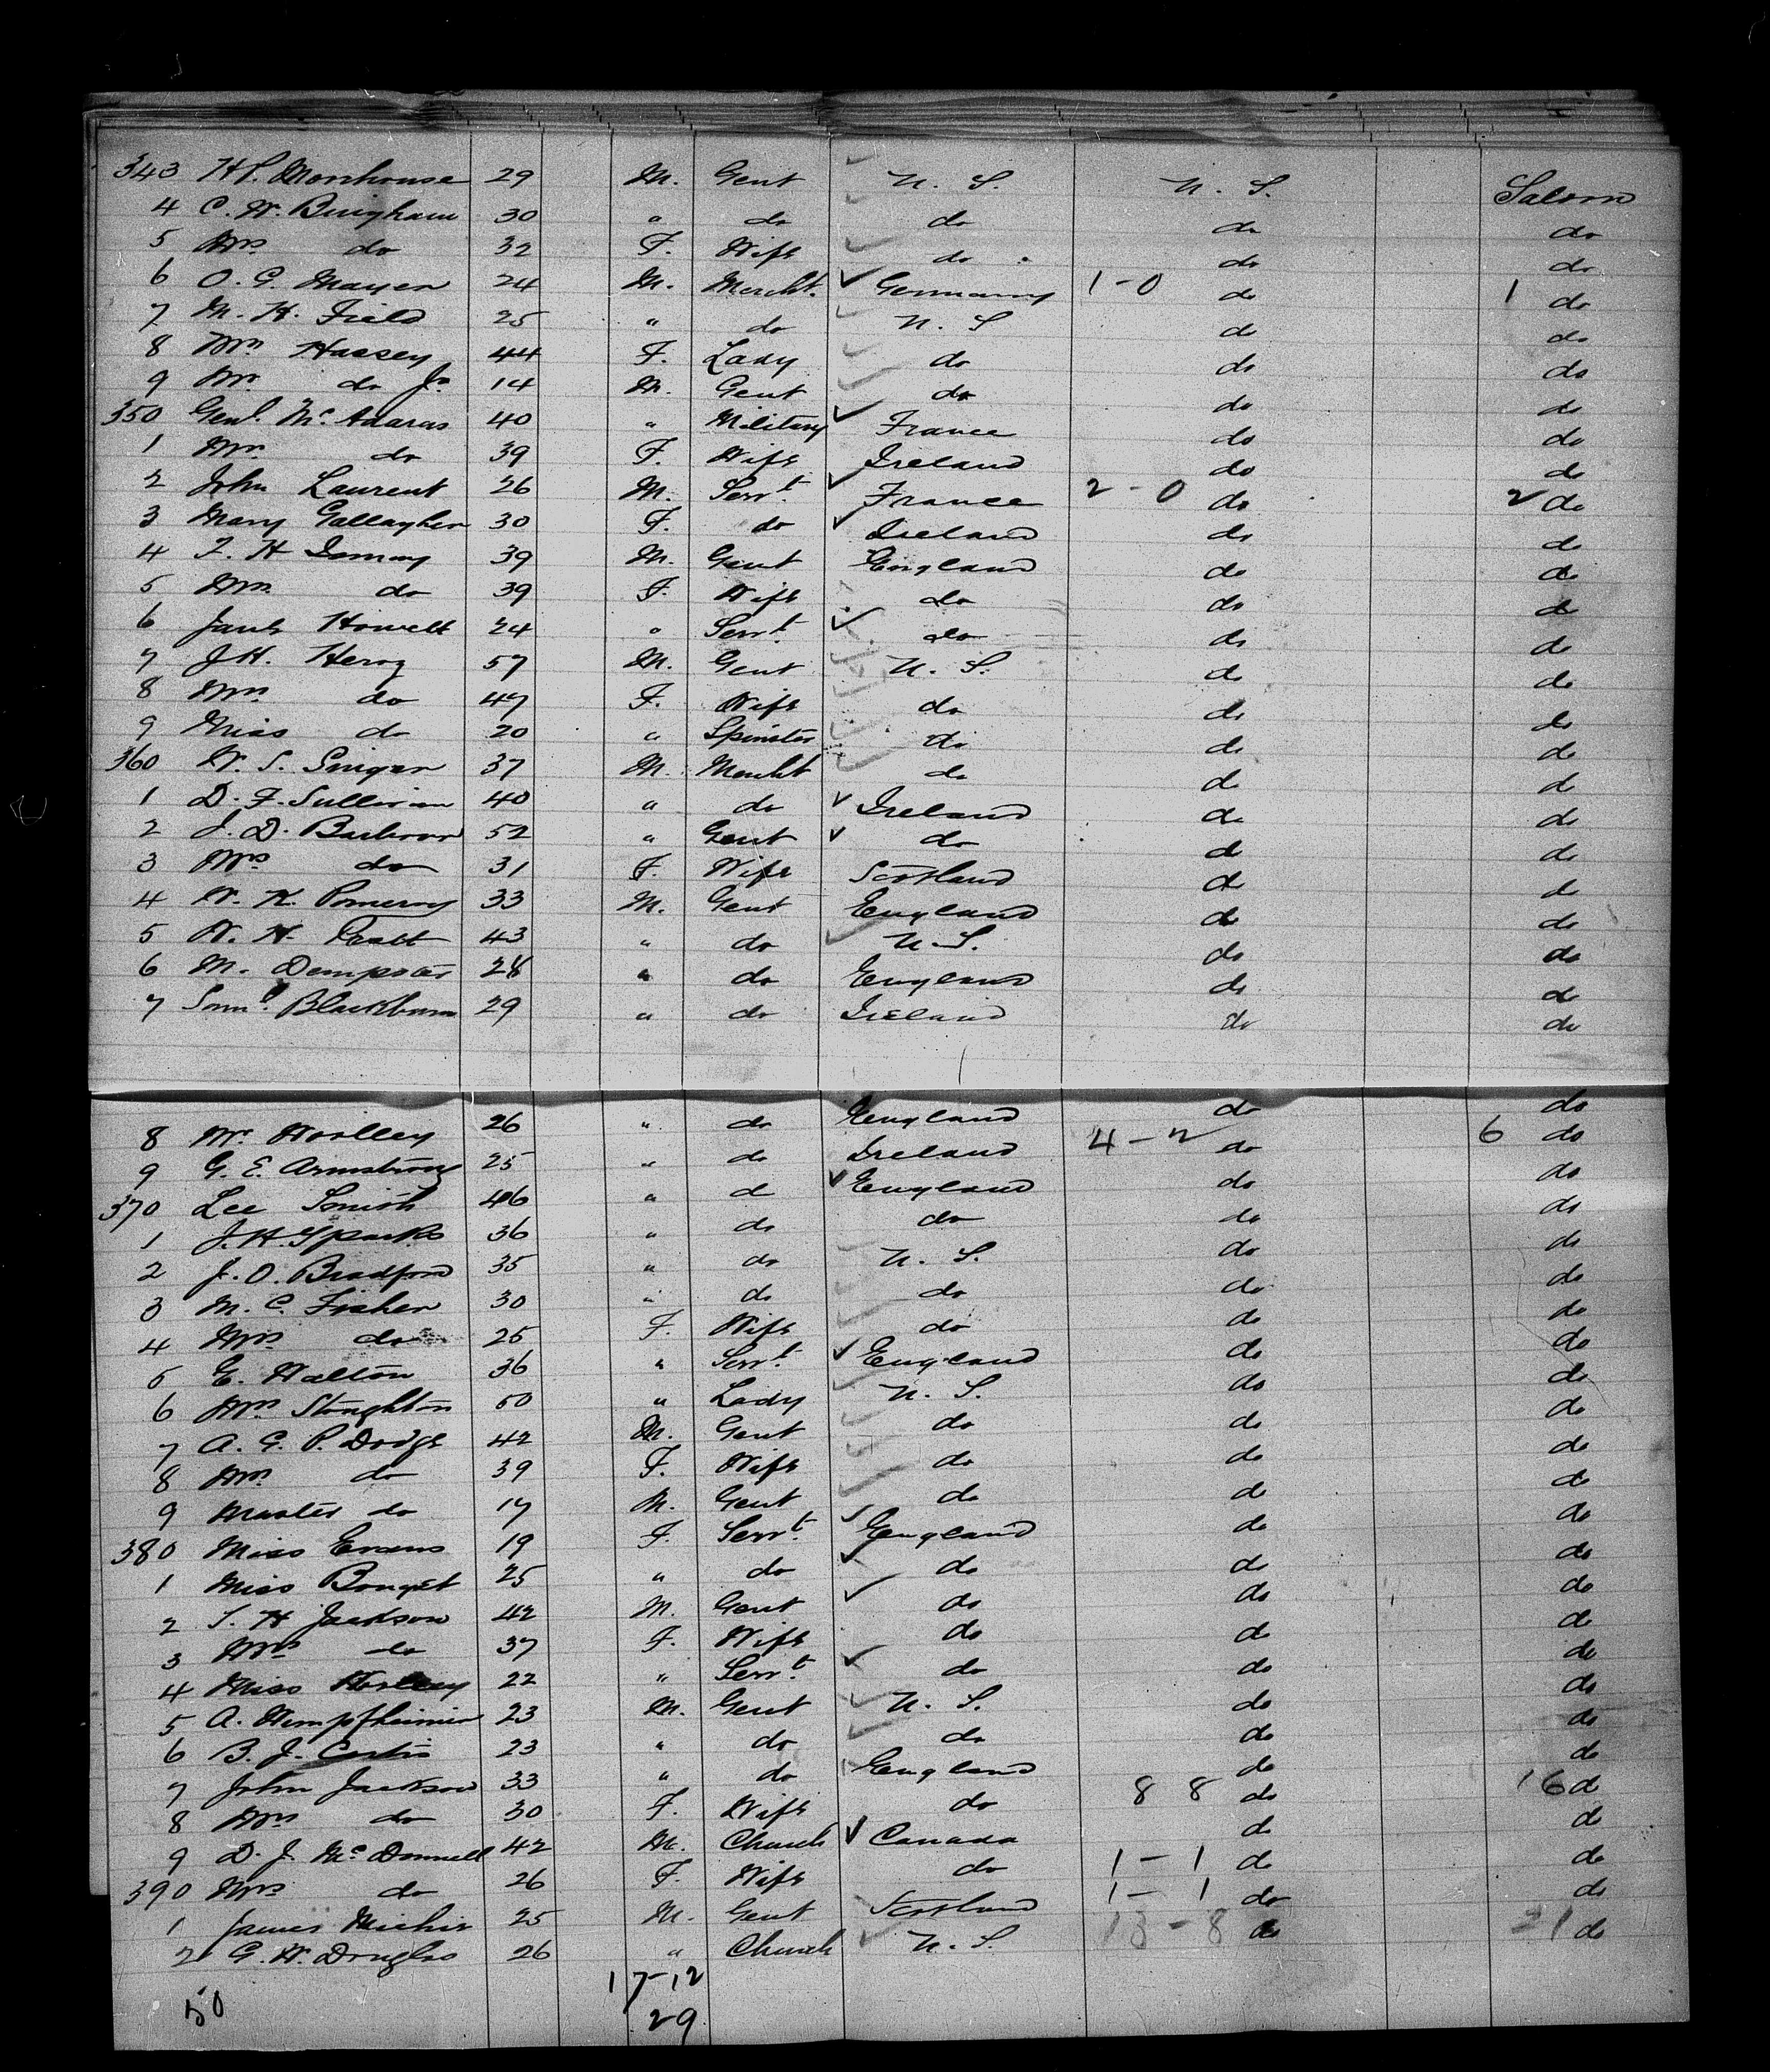 343 H P. Morehouse 29 M. Gent U. S. U. S. Saloon
4 C. W. Bingham 30 " do do do do
5 Mrs do 32 F. Wife do do do
6 O. G. Mayer 24 M. Mercht. Germany 1-0 do 1 do
7 M. H. Field 25 " do U. S do do
8 Mrs Hassey 44 F. Lady do do do
9 Mr. do Jr 14 M. Gent do do do
350 Genl. Mc Adaras 40 " Military France do do
1 Mrs do 39 F. Wife Ireland do do
2 John Laurent 26 M. Servt. France 2-0 do 2 do
3 Mary Gallagher 30 F. do Ireland do do
4 F. H 39 M. Gent England do do
5 Mrs do 39 F. Wife do do do
6 Howell 24 " Servt. do do do
7 J H. 57 M. Gent U. S. do do
8 Mrs do 47 F. Wife do do do
9 Miss do 20 " Spinster do do do
360 W. S. 37 M. Mercht do do do
1 D. F. Sullivan 40 " do Ireland do do
2 J. D. Barbour 52 " Gent do do do
3 Mrs do 31 F. Wife Scotland do do
4 W. K. Pomeroy 33 M. Gent England do do
5 W. H. Pratt 43 " do U. S. do do
6 M. Dempster 28 " do England do do
7 Saml. Blackburn 29 " do Ireland do do
8 Mr. Woolley 26 " do England do do
9 G. E. Armstrong 25 " do Ireland 4-2 do 6 do
370 Lee Smith 46 " d England do do
1 J. H. Sparks 36 " do do do do
2 J. O. Bradford 35 " do U. S. do do
3 M. C. Fisher 30 " do do do do
4 Mrs do 25 F. Wife do do do
5 E. Walton 36 " Servt. England do do
6 Mrs Stoughton 50 " Lady U. S. do do
7 A. G. P. Dodge 42 M. Gent do do do
8 Mrs do 39 F. Wife do do do
9 Master do 17 M. Gent do do do
380 Miss Evans 19 F. Servt. England do do
1 Miss 25 " do do do do
2 S. H Jackson 42 M. Gent do do do
3 Mrs do 37 F. Wife do do do
4 Miss 22 " Servt. do do do
5 A. Wimpfheimer 23 M. Gent U. S. do do
6 B. J. Curtis 23 " do do do do
7 John Jackson 33 " do England do do
8 Mrs do 30 F. Wife do 8 8 do 16 do
9 D. J. Mc Donnell 42 M. Church Canada do do
390 Mrs do 26 F. Wife do 1-1 do do
1 James Michie 25 M. Gent Scotland 1-1 do do
2 G. W. Douglas 26 " Church U. S. 13-8 do 21 do
50 17-12
29